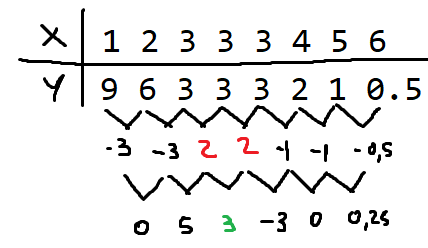 X 1 2 3 3 3 4 5 6
Y 9 6 3 3 3 2 1 0.5
-3 -3 2 2 -1 -1 -0,5
0 5 3 -3 0 0,25